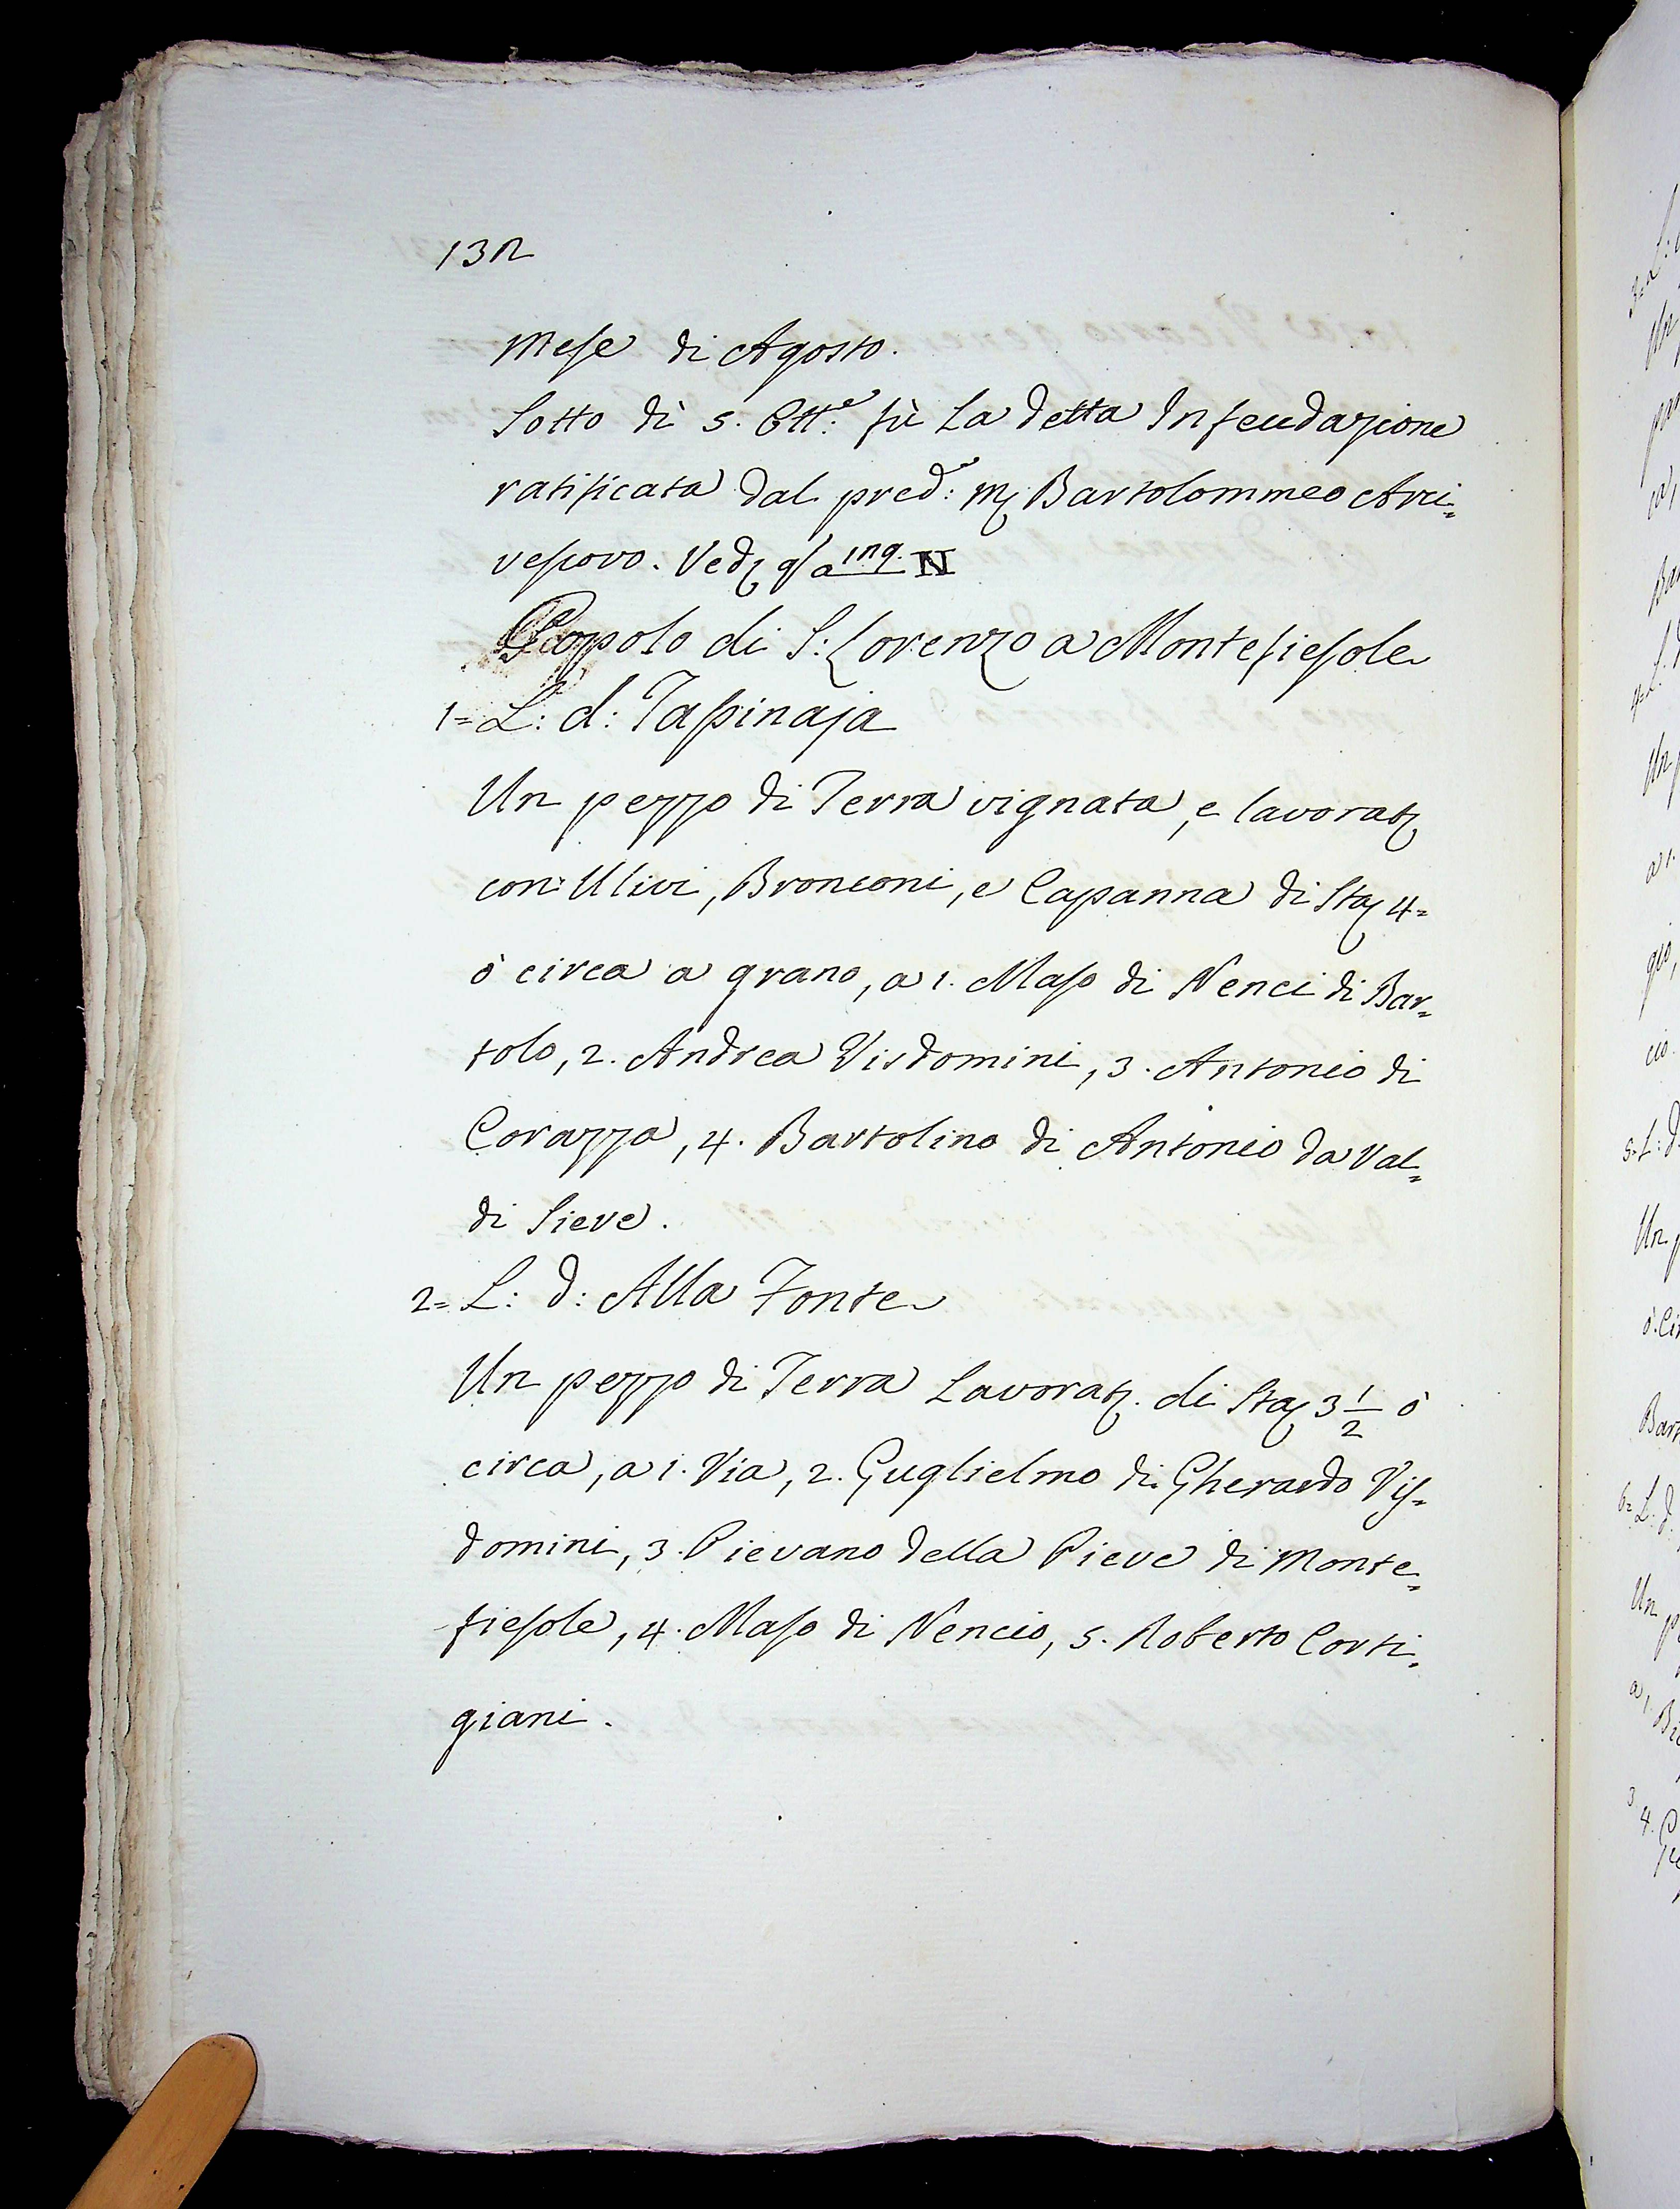 132
Mese di Agosto.
Sotto dì 5. Ott.e fù la detta Infeudazione
ratificata dal pred.o M. Bartolommeo Arci=
vescovo. Ved. q. a 119. N
Popolo di S: Lorenzo a Montefiesole
1= L: d: Tassinaja
Un pezzo di Terra vignata, e lavorat.
con Ulivi, Bronconi, e Capanna di Sta. 4=
ò circa a grano, a 1. Maso di Nenci di Bar=
tolo, 2. Andrea Visdomini, 3. Antonio di
Corazza, 4. Bartolino di Antonio da Val=
di Sieve.
2= L: d: Alla Fonte
Un pezzo di Terra Lavorat. di Sta. 3 1/2 ò
circa, a 1. Via, 2. Guglielmo di Gherardo Vis=
domini, 3. Pievano della Pieve di Monte=
fiesole, 4. Maso di Nencio, 5. Roberto Corti=
giani.